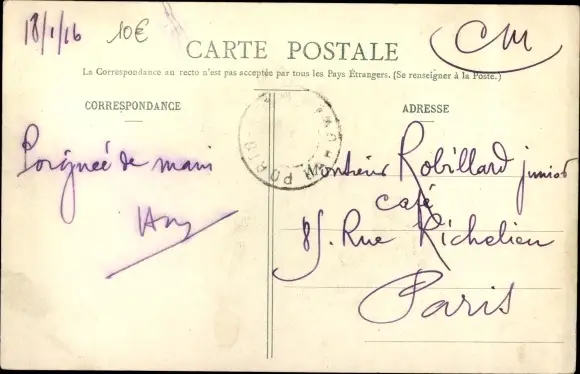 18/1/16
10€
CM
CARTE POSTALE
La Correspondance au recto n'est pas acceptée par tous les Pays Étrangers. (Se renseigner à la Poste.)
CORRESPONDANCE
ADRESSE
Poignée de main
Monsieur Robillard junior
café
85. Rue Richelieu
Paris